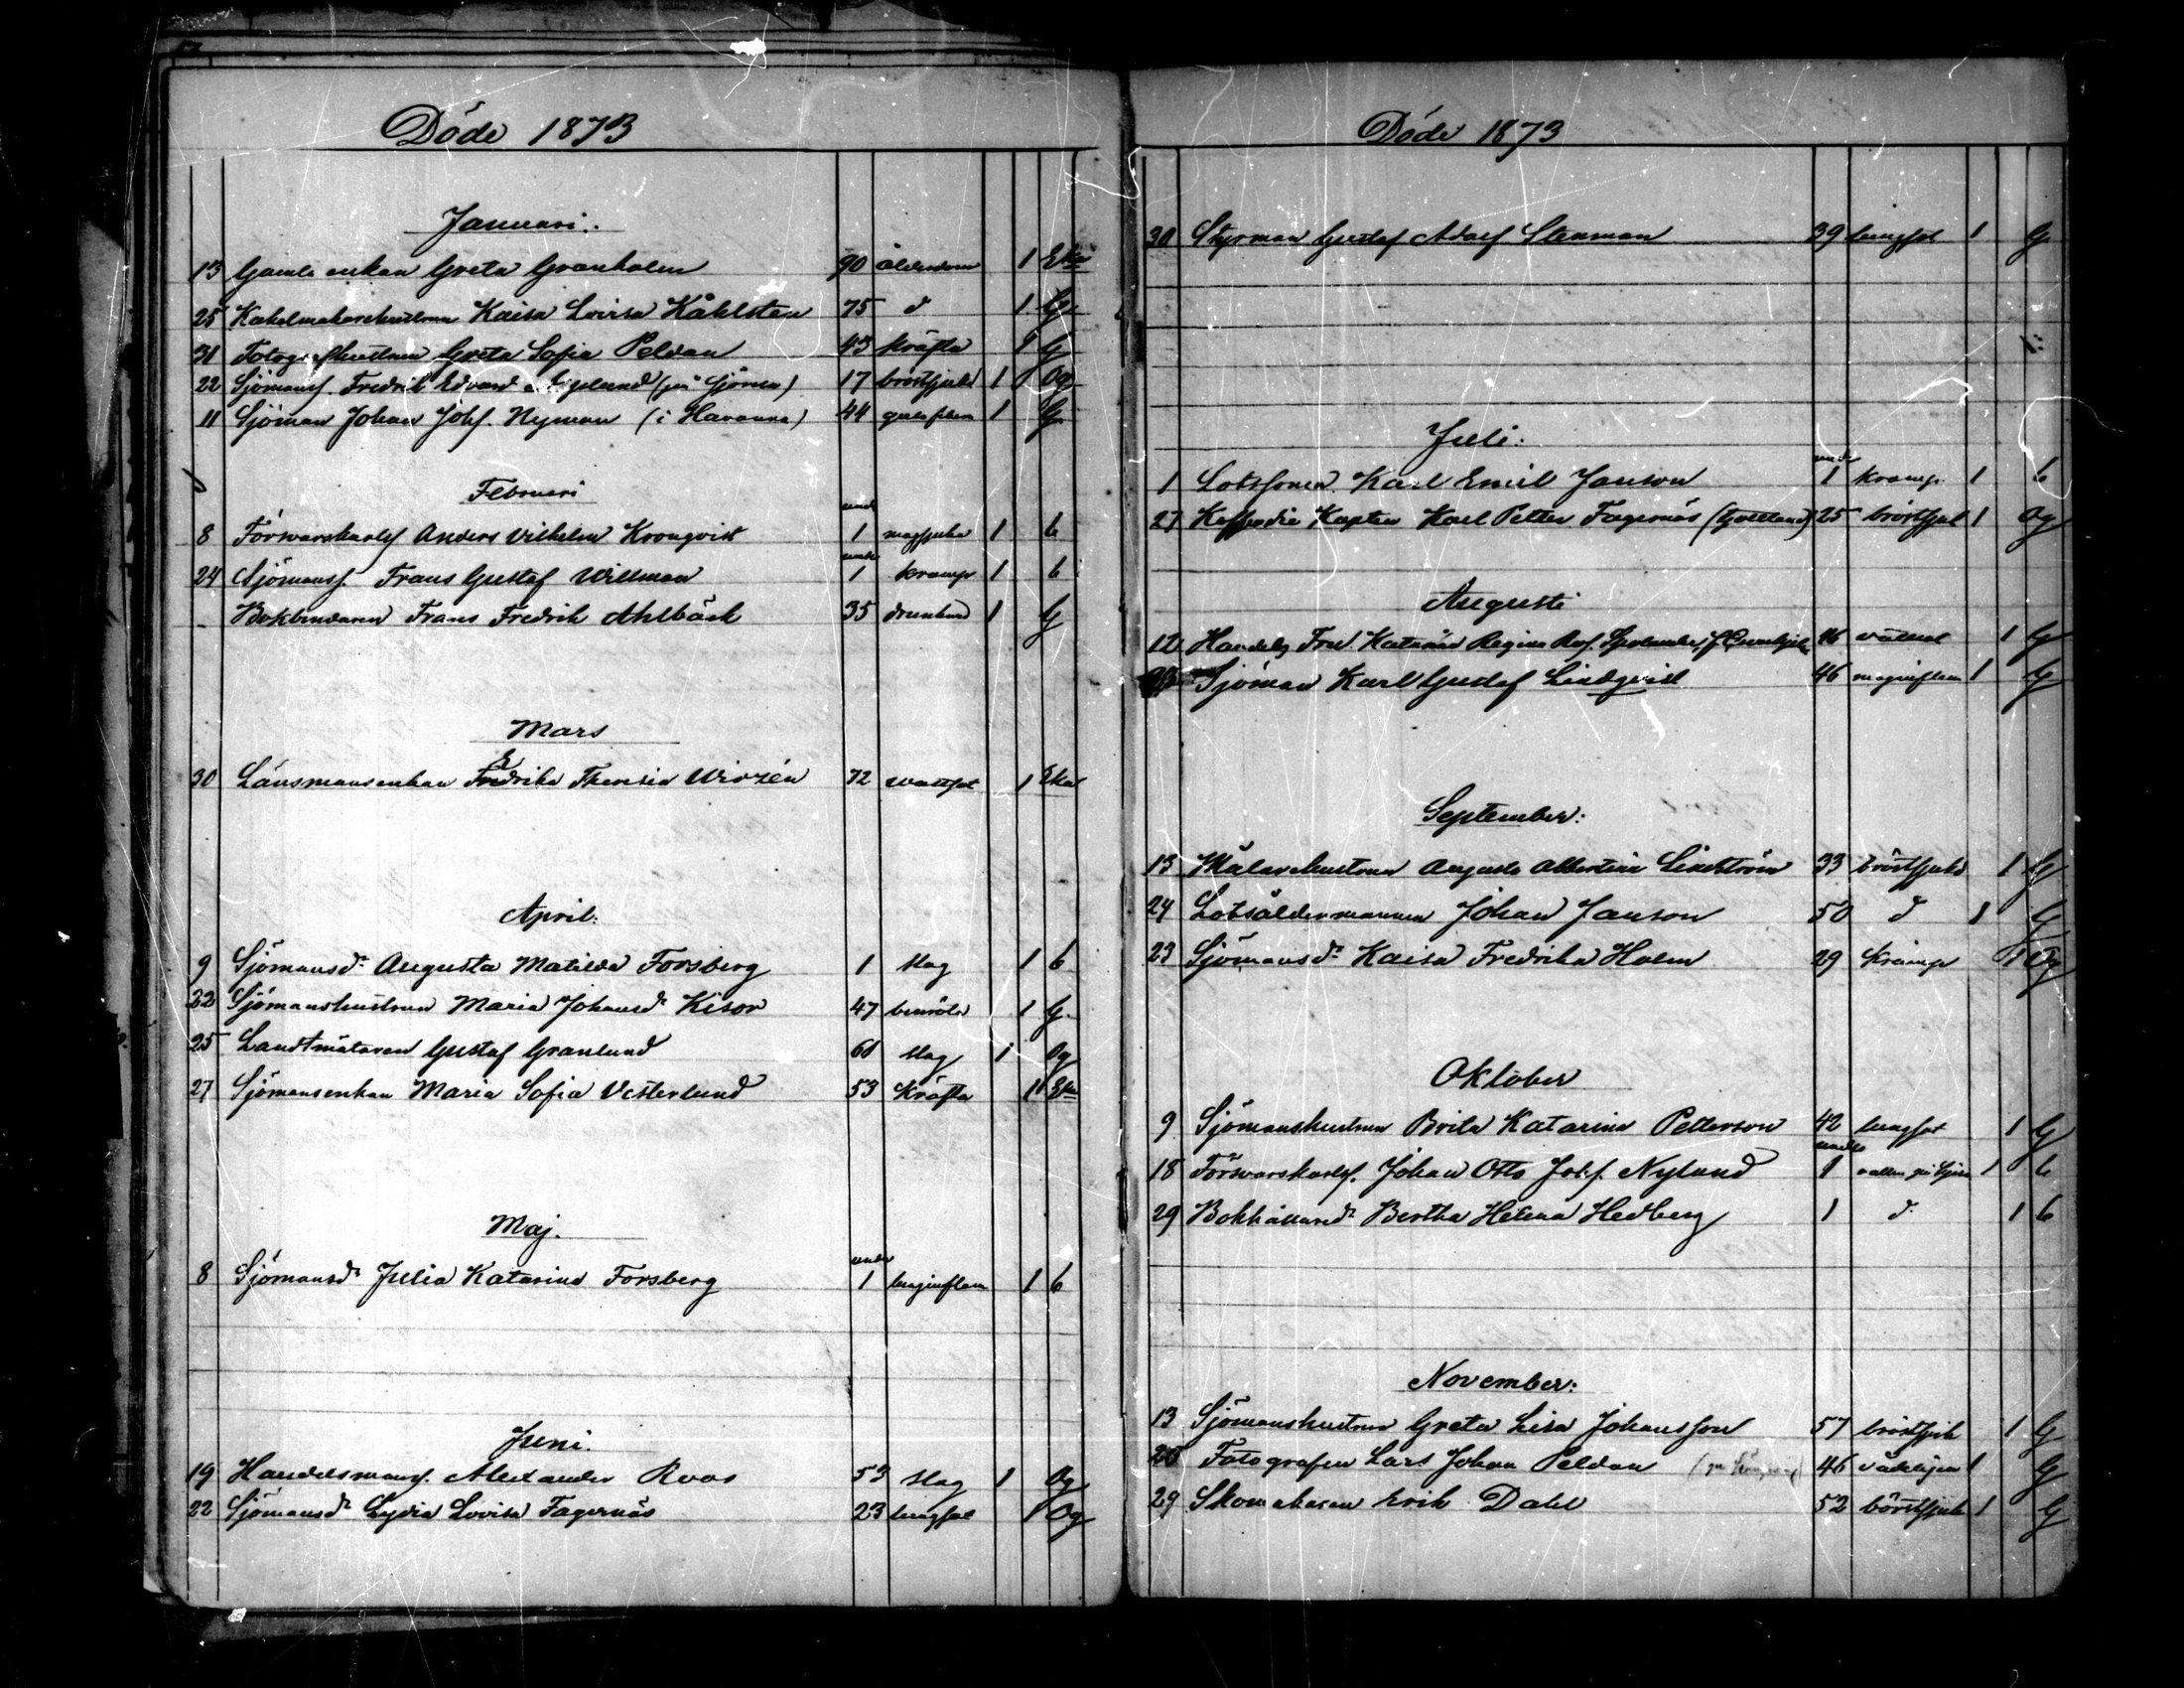 Döde 1873
Januari.
13 Gamla enkan Greta Granholm 90 ålderdom 1 Eka
25 Kakelmakarehustrun Kaisa Lovisa Kåhlsten 75 d 1 G
31 Fotografhustrun Greta Sofia Peldan 43 kräfta 1 G
22 Sjömanss. Fredrik Edvard (på sjöresa) 17 bröstsjukd 1 Og
11 Sjöman Johan Johs. Nyman (i Havanna) 44 gula febern 1 G
Februari
8 Försvarskarls Anders Vilhelm Kronqvist under 1 magsjuka 1 b
24 Sjömanss. Frans Gustaf Willman under 1 kramp 1 b
- Bokbindaren Frans Fredrik Ahlbäck 35 drunknad 1 G
Mars
30 Länsmansenkan Fredrika Theresia Wirzén 72 wattsot 1 Eka
April.
9 Sjömansd:r Augusta Matilda Forsberg 1 slag 1 b
22 Sjömanshustrun Maria Johansd:r Kisor 47 benröta 1 G.
25 Landtmätaren Gustaf Granlund 60 slag 1 Og
27 Sjömansenkan Maria Sofia Vesterlund 53 Kräfta 1 Eka
Maj.
8 Sjömansd:r Julia Katarina Forsberg under 1 lunginflam 1 b
Juni.
19 Handelsmanss. Alexander Roos 53 slag 1 Og
22 Sjömansd:r Lydia Lovisa Fagernäs 23 lungsot 1 Og
Döde 1873
30 Styrman Gustaf Adolf Stenman 39 lungsot 1 G
Juli:
1 Lotssonen Karl Emil Janson under 1 kramp 1 b
27 Kofferdie Kapten Karl Petter Fagernäs (Gottland) 25 bröstsjuk 1 Og
Augusti
12 Handels Fru Katarina Regina 46 1 G
Sjöman Karl Gustaf Lindqvist 46 maginflam 1 G
September:
13 Målarehustrun Augusta Albertina Lindström 33 bröstsjukd 1 G
24 Lotsåldermannen Johan Janson 50 d 1 G
23 Sjömansd:r Kaisa Fredrika Holm 29 Kramp 1 Og
Oktober
9 Sjömanshustrun Brita Katarina Petterson 42 lungsot 1 G
18 Försvarskarls. Johan Otto Johs. Nylund under 1 1 b
29 Bokhållared:r Bertha Helena Hedberg 1 d 1 b
November:
13 Sjömanshustrun Greta Lisa Johansson 57 bröstsjuk 1 G
20 Fotografen Lars Johan Peldan 46 1 G
29 Skomakaren Erik Dahl 52 bröstsjuk 1 G